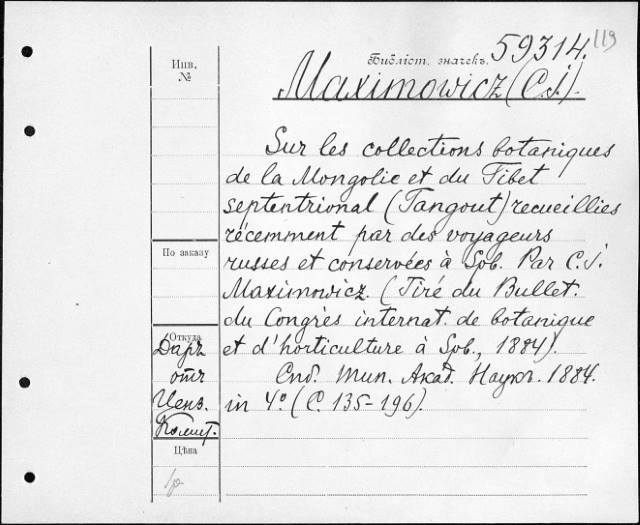 119
Библіот. значекъ. 59314.
Инв.
№
Maximowicz (C. J.).
Sur les collections botaniques
de la Mongolie et du Tibet
septentrional (Tangout) recueillies
récemment par des voyageurs
russes et conservées à Spb. Par C. J.
Maximowicz. (Tiré du Bullet.
du Congrès internat. de botanique
et d'horticulture à Spb., 1884).
Спб. Тип. Акад. Наукъ. 1884.
in 4º (С. 135-196).
По заказу
Откуда
Даръ
отъ
Ценз.
Комит.
Цѣна